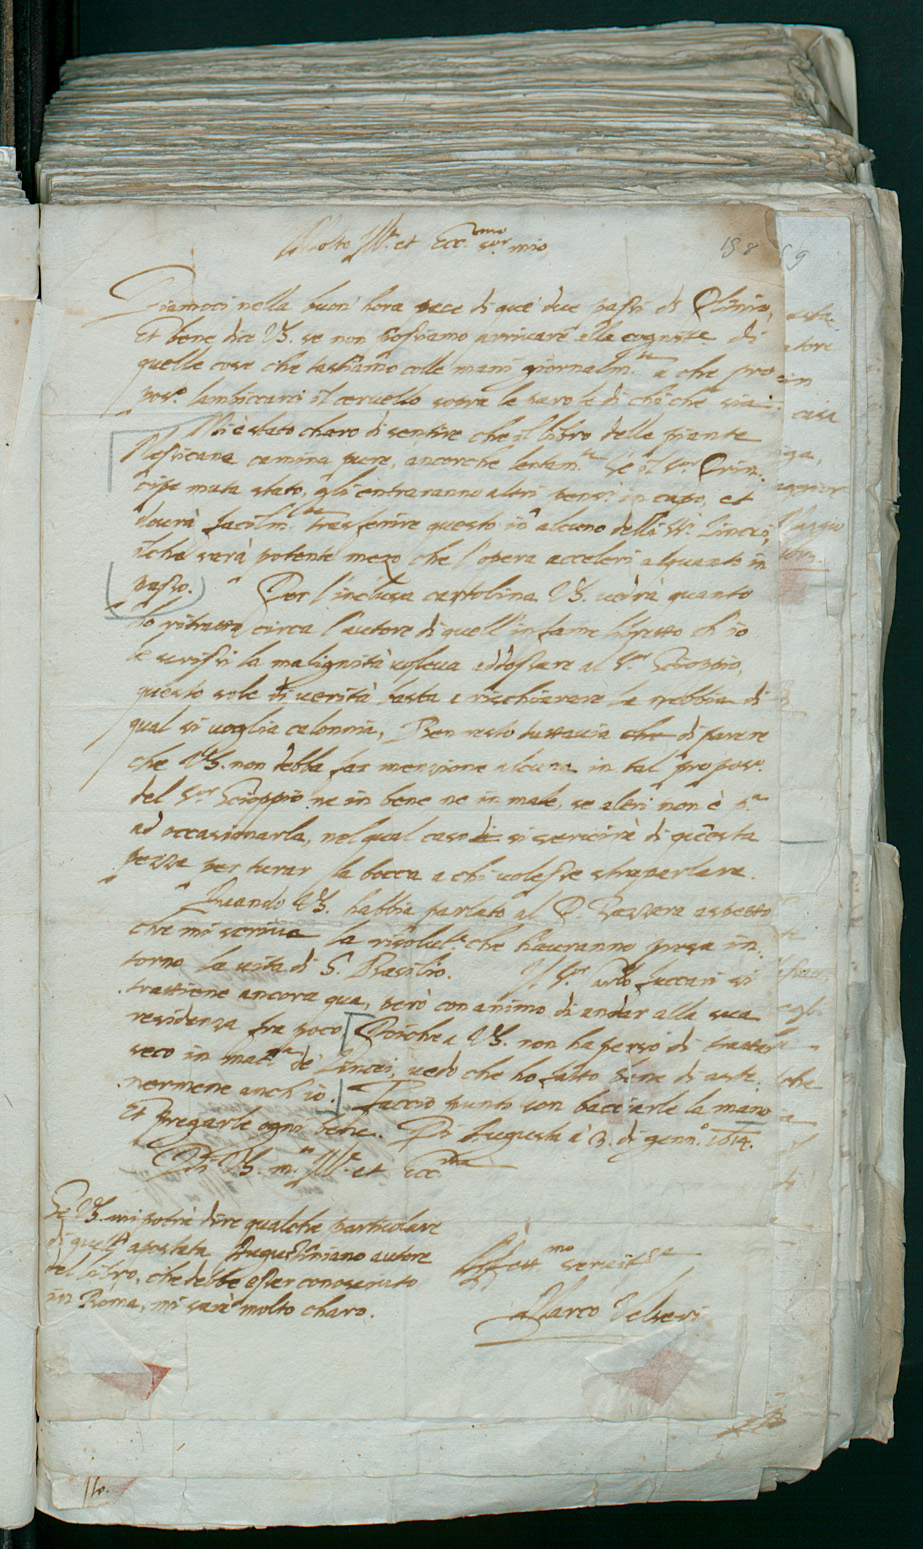 Molto Ill.re et Ecc.mo sor mio
158
Diamoci nella buon' hora pace di que' due passi di Plinio,
et bene dice V.S. se non possiamo arrivare alla cognit.ne di
quelle cose che tastiamo colle mani giornalm.te a che pro
pos.o lambiccarci il cervello sopra le parole di chi che sia.
Mi è stato charo di sentire che il libro delle piante
Messicane camina pure, ancorche lentam.te Se il sor Prin
cipe muta stato, gli entraranno altri pensi in capo, et
dovrà facilm.te trasferire questo in alcuno delli ss.ri Lincei,
il che sarà potente mezo che l'opera acceleri alquanto in
passo. Per l'inclusa cartolina V.S. vedrà quanto
ho ritratto circa l'autore di quell' infame libretto ch' io
le scrissi la malignità voleva addossare al sor Scioppio,
questo sole di verità basta a rischiarare la nebbia di
qual si voglia calonnia, Ben resto tuttavia che di parere
che V.S. non debba far menzione alcuna in tal propos.o
del sor Scioppio ne in bene ne in male, se altri non è p.o
ad occasionarla, nel qual caso si servirà di questa
pezza per turar la bocca a chi volesse straparlare.
Quando V.S. habbia parlato al P. aspetto
che mi scriva la risolut.ne che hauranno presa in
torno la vita di S. Basilio. Il sor si
trattiene ancora qua, però con animo di andar alla sua
residenza fra poco. Poiche a V.S. non ha perso di trattar
seco in mat.a de' Lincei, vedo che ho fatto bene di aste
nermene anch' io. Faccio punto con baciarle la mano
et pregarle ogni bene. Di Augusta à 3. di genn.o 1614.
Di V.S. m.to Ill.re et Ecc.ma
Se V.S. mi potrà dire qualche particolare
di quell' apostata Augustiniano autore
del libro, che debbe esser conosciuto
in Roma, mi sarà molto charo.
Aff.mo servit.re
Marco Velseri